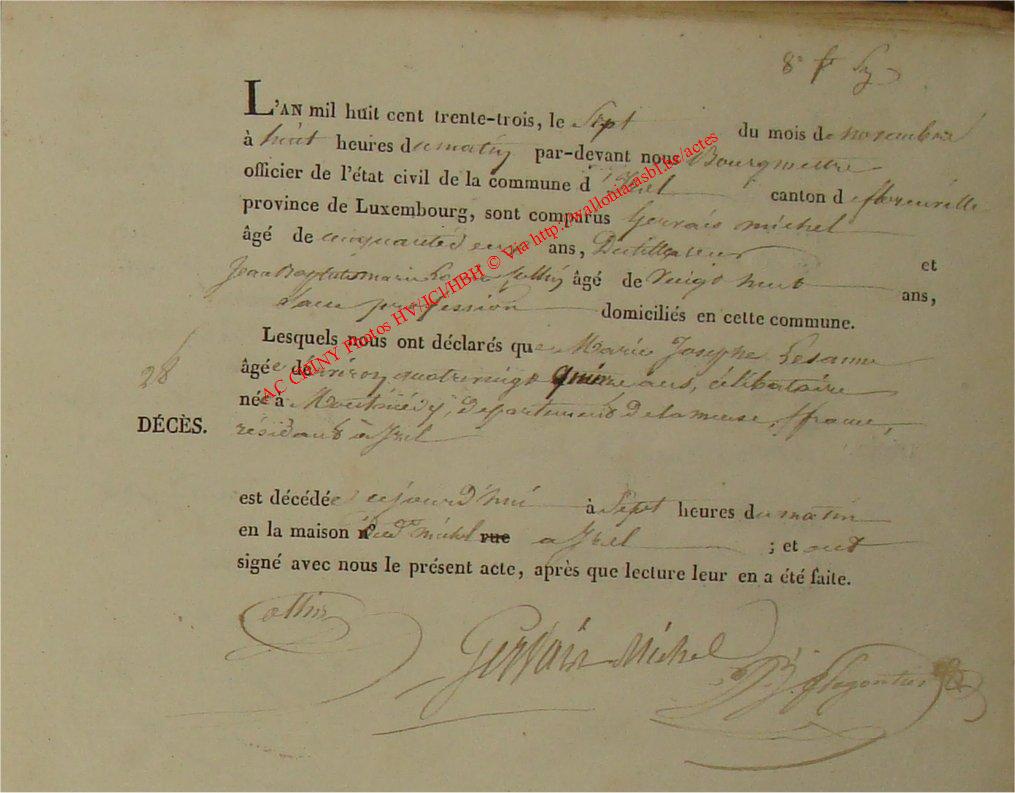 8e
L'AN mil huit cent trente-trois, le Sept du mois de novembre
à huit heures du matin par-devant nous Bourgmestre
officier de l'état civil de la commune d'Izel canton de florenville
province de Luxembourg, sont comparus Gervais michel
âgé de cinquante deux ans, Distillateur et
Jean Baptiste marie Collin âgé de vingt huit ans,
Sans profession domiciliés en cette commune.
Lesquels nous ont déclarés que Marie Josephe Lesanne
âgée de environ quatrevingt quinze ans, célibataire
28
née à Montmédy, département de la meuse, ffrance,
DÉCÈS.
résidant à Izel
est décédée cejourd'hui à Sept heures du matin
en la maison dud michel rue a Izel ; et ont
signé avec nous le présent acte, après que lecture leur en a été faite.
Collin
Gervais Michel
AC CHINY Photos HV/JCl/HBH © Via http://wallonia-asbl.be/actes